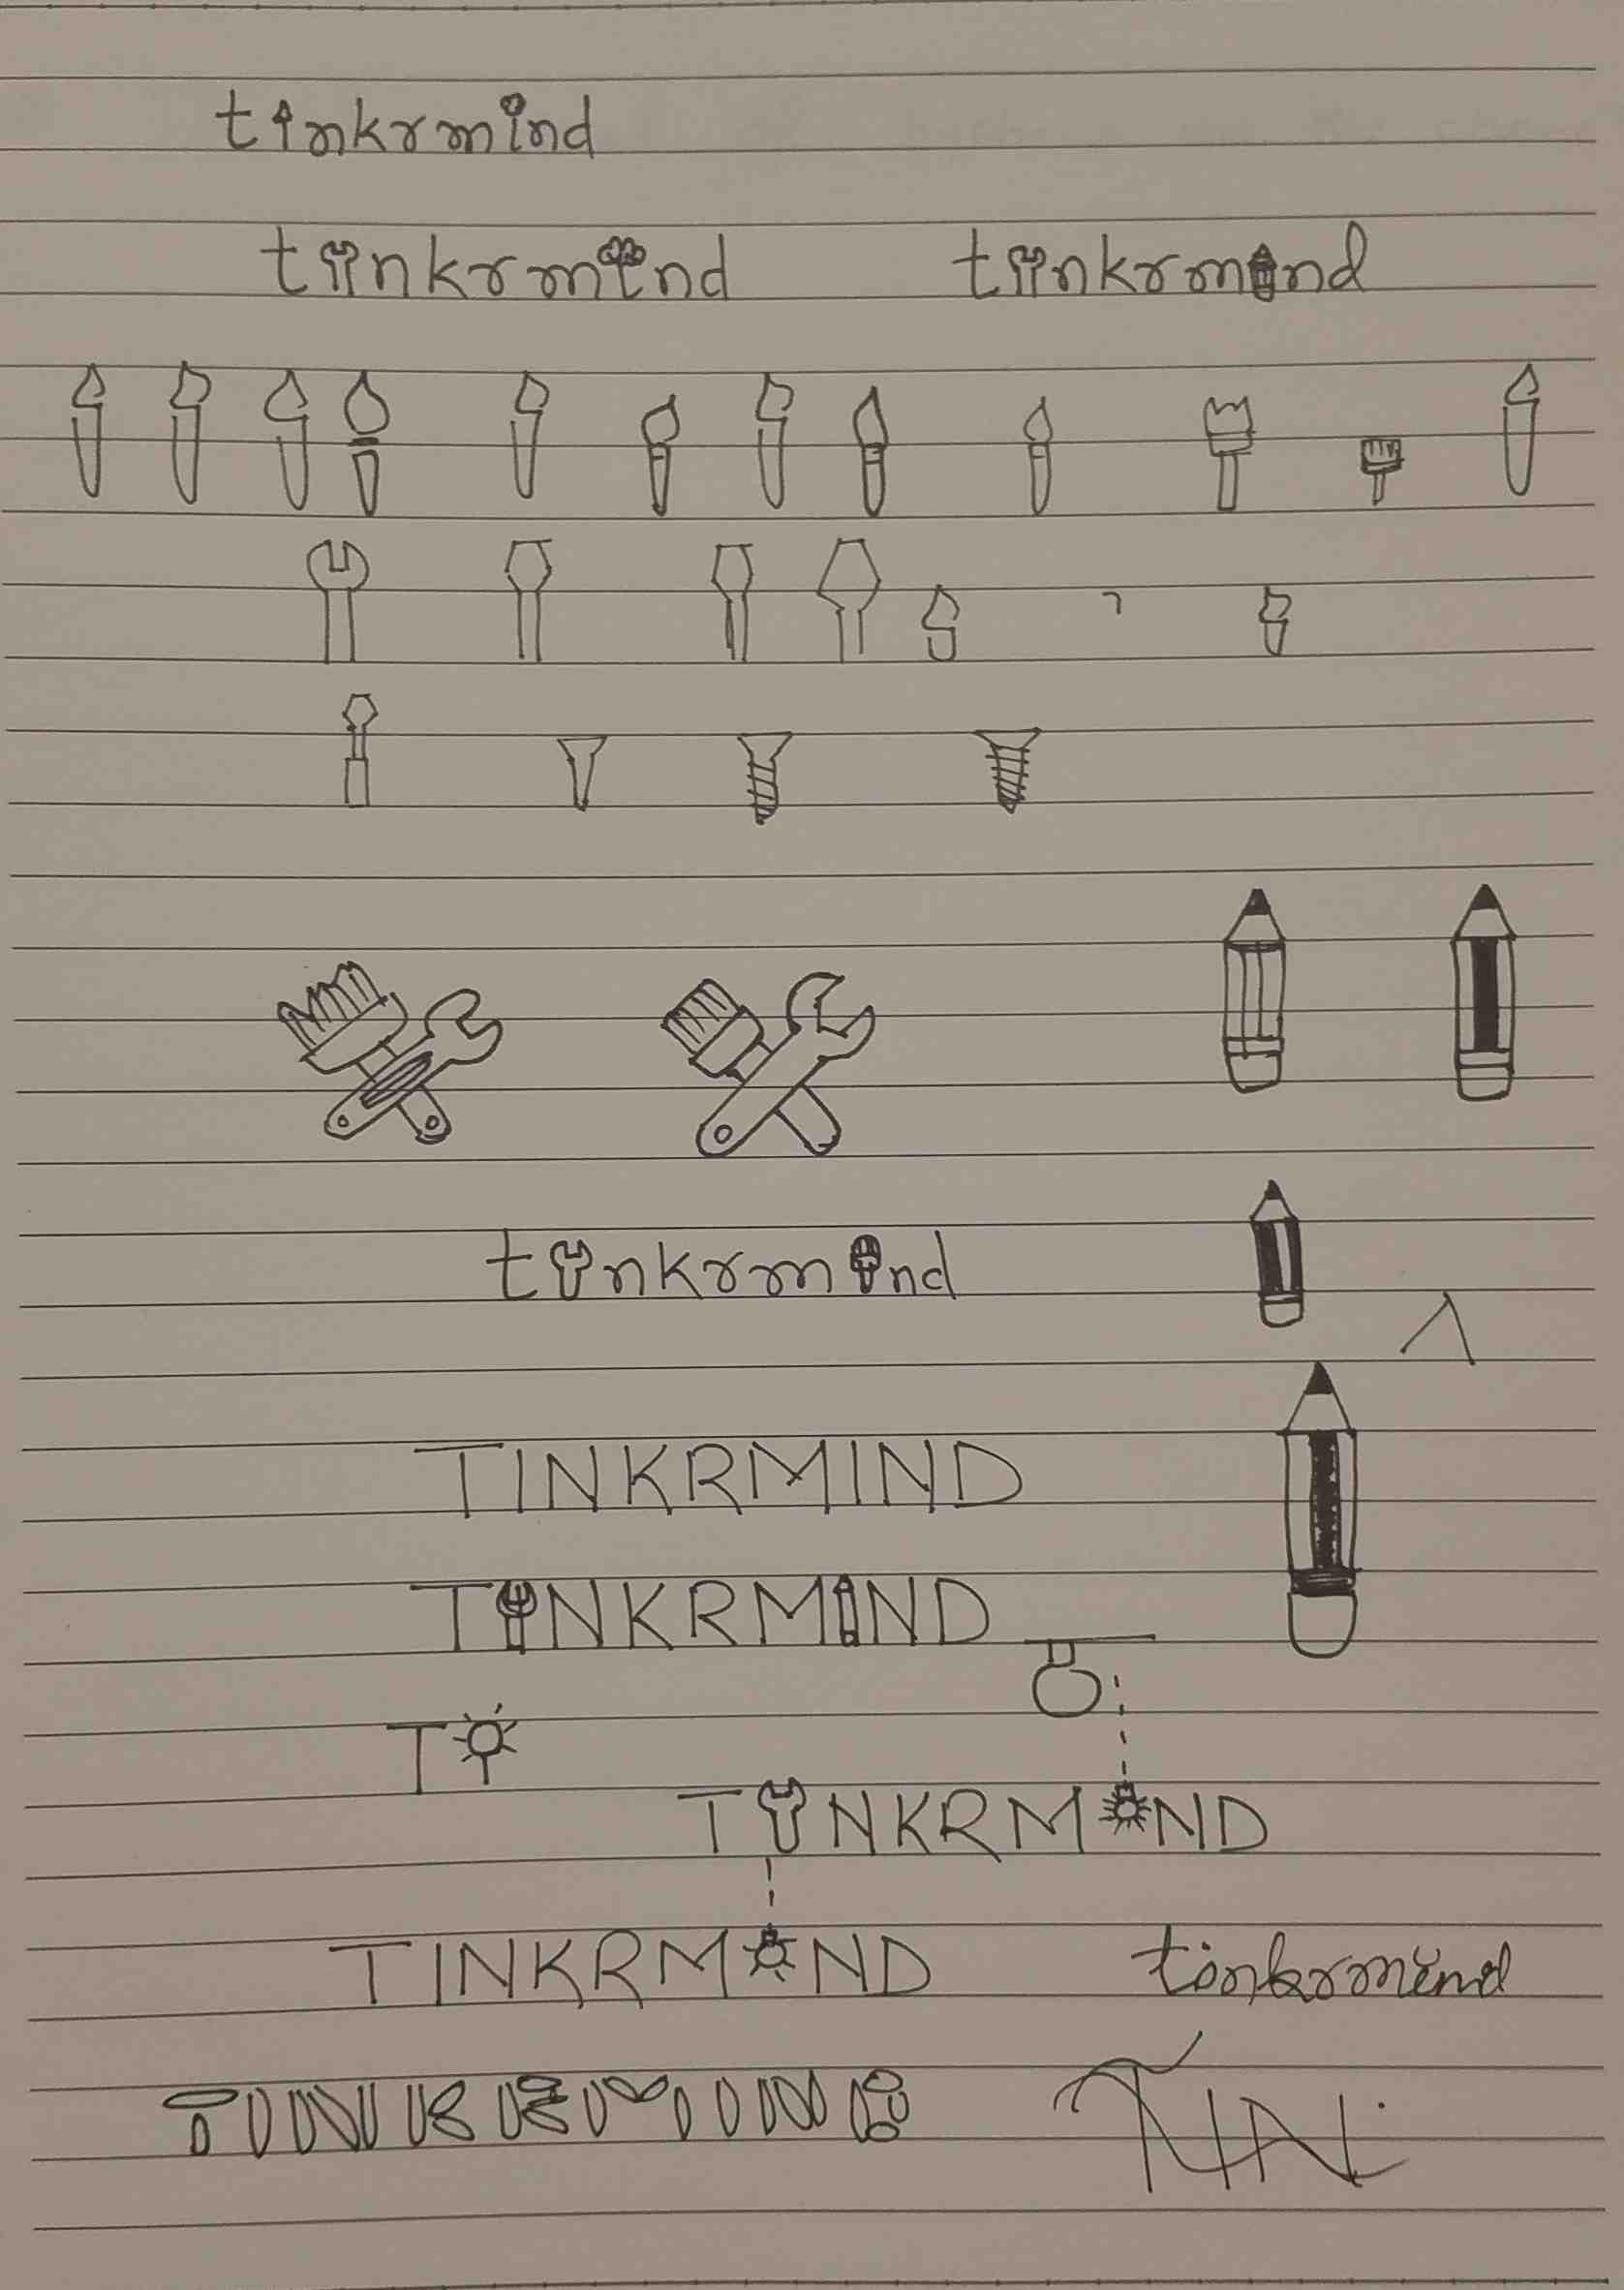 tinkrmind
tinkrmind tinkrmind
tinkrmind
TINKRMIND
TINKRMIND
T
TINKRMIND
TINKRMIND tinkrmind
TINKRMIND